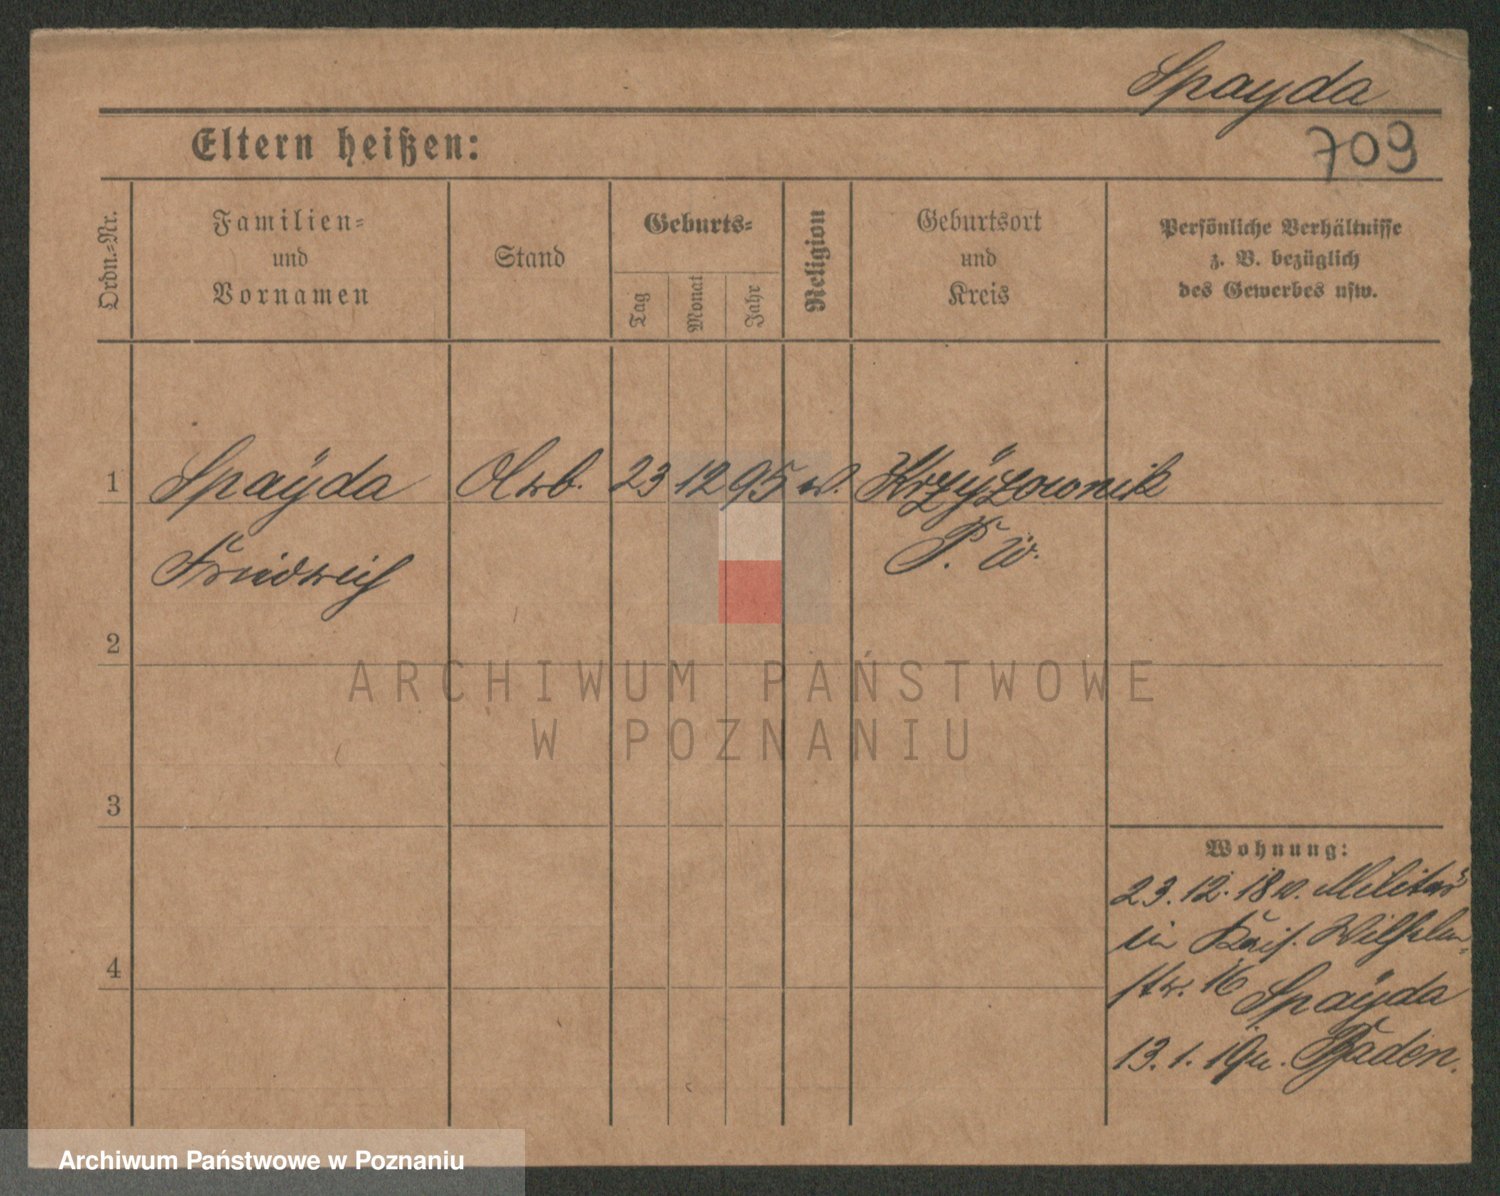 Spayda
709
Eltern heißen:
Ordn.-Nr.
Familien-
und
Vornamen
Stand
Geburts-
Tag
Monat
Jahr
Religion
Geburtsort
und
Kreis
Persönliche Verhältnisse
z. B. bezüglich
des Gewerbes usw.
1 Spaÿda Arb. 23 12 95 Krzÿzownik
Friedrich P. W.
2
3
4
ARCHIWUM PAŃSTWOWE
W POZNANIU
Wohnung:
23.12.18 v. Militär
in Kais. Wilhelm-
str. 16 Spaÿda
13.1.19 Baden.
Archiwum Państwowe w Poznaniu